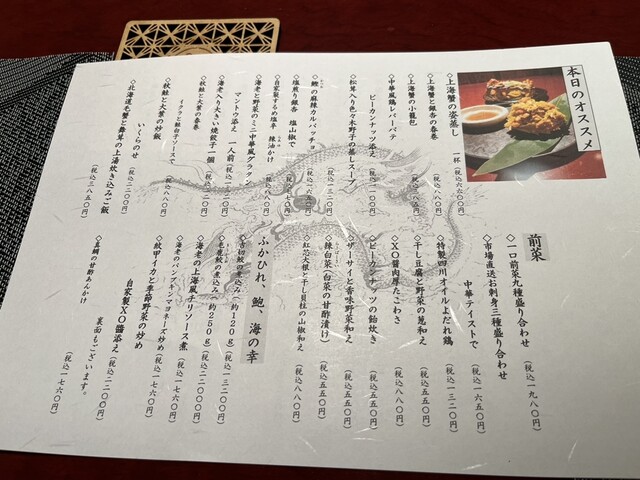 本日のオススメ
◇上海蟹の姿蒸し
一杯(税込六六〇〇円)
◇上海蟹と銀杏の春巻
(税込八八〇円)
◇上海蟹の小籠包
◇中華風鶏レバーパテ
ピーカンナッツ添え(税込一一〇〇円)
◇松茸入り色々木野子の蒸しスープ
(税込一三二〇円)
◇鰹の麻辣カルパッチョ
◇塩煎り銀杏 塩山椒で
◇自家製するめ塩辛 辣油かけ
(税込八八〇円)
◇海老と野菜のミニ中華風グラタン
マントウ添え 一人前
◇海老入り大きい焼餃子一個
◇秋鮭と大葉の春巻
イクラと鮭白子ソースで
◇秋鮭と大葉の炒飯
いくらのせ(税込二二〇〇円)
◇北海道毛蟹と舞茸の上湯炊き込みご飯
(税込三八五〇円)
前菜
◇一口前菜九種盛り合わせ
(税込一九八〇円)
◇市場直送お刺身三種盛り合わせ
中華テイストで(税込一六五〇円)
◇特製四川オイルよだれ鶏
(税込一三二〇円)
◇干し豆腐と野菜の葱和え
(税込五五〇円)
◇XO醬肉厚たこわさ
(税込八八〇円)
◇ピーカンナッツの飴炊き
(税込五五〇円)
◇ザーサイと香味野菜和え
(税込五五〇円)
◇辣白菜(白菜の甘酢漬け)
(税込五五〇円)
◇紅芯大根と干し貝柱の山椒和え
(税込八八〇円)
ふかひれ、鮑、海の幸
◇吉切鮫の煮込み(約120g)
(税込一三二〇〇円)
◇毛鹿鮫の煮込み(約250g)
(税込二二〇〇〇円)
◇海老の上海風チリソース煮
(税込一七六〇円)
◇海老のパンプキンマヨネーズ炒め
(税込一七六〇円)
◇紋甲イカと季節野菜の炒め
自家製XO醬添え(税込一七六〇円)
◇真鯛の甘酢あんかけ
(税込一七六〇円)
裏面もございます。